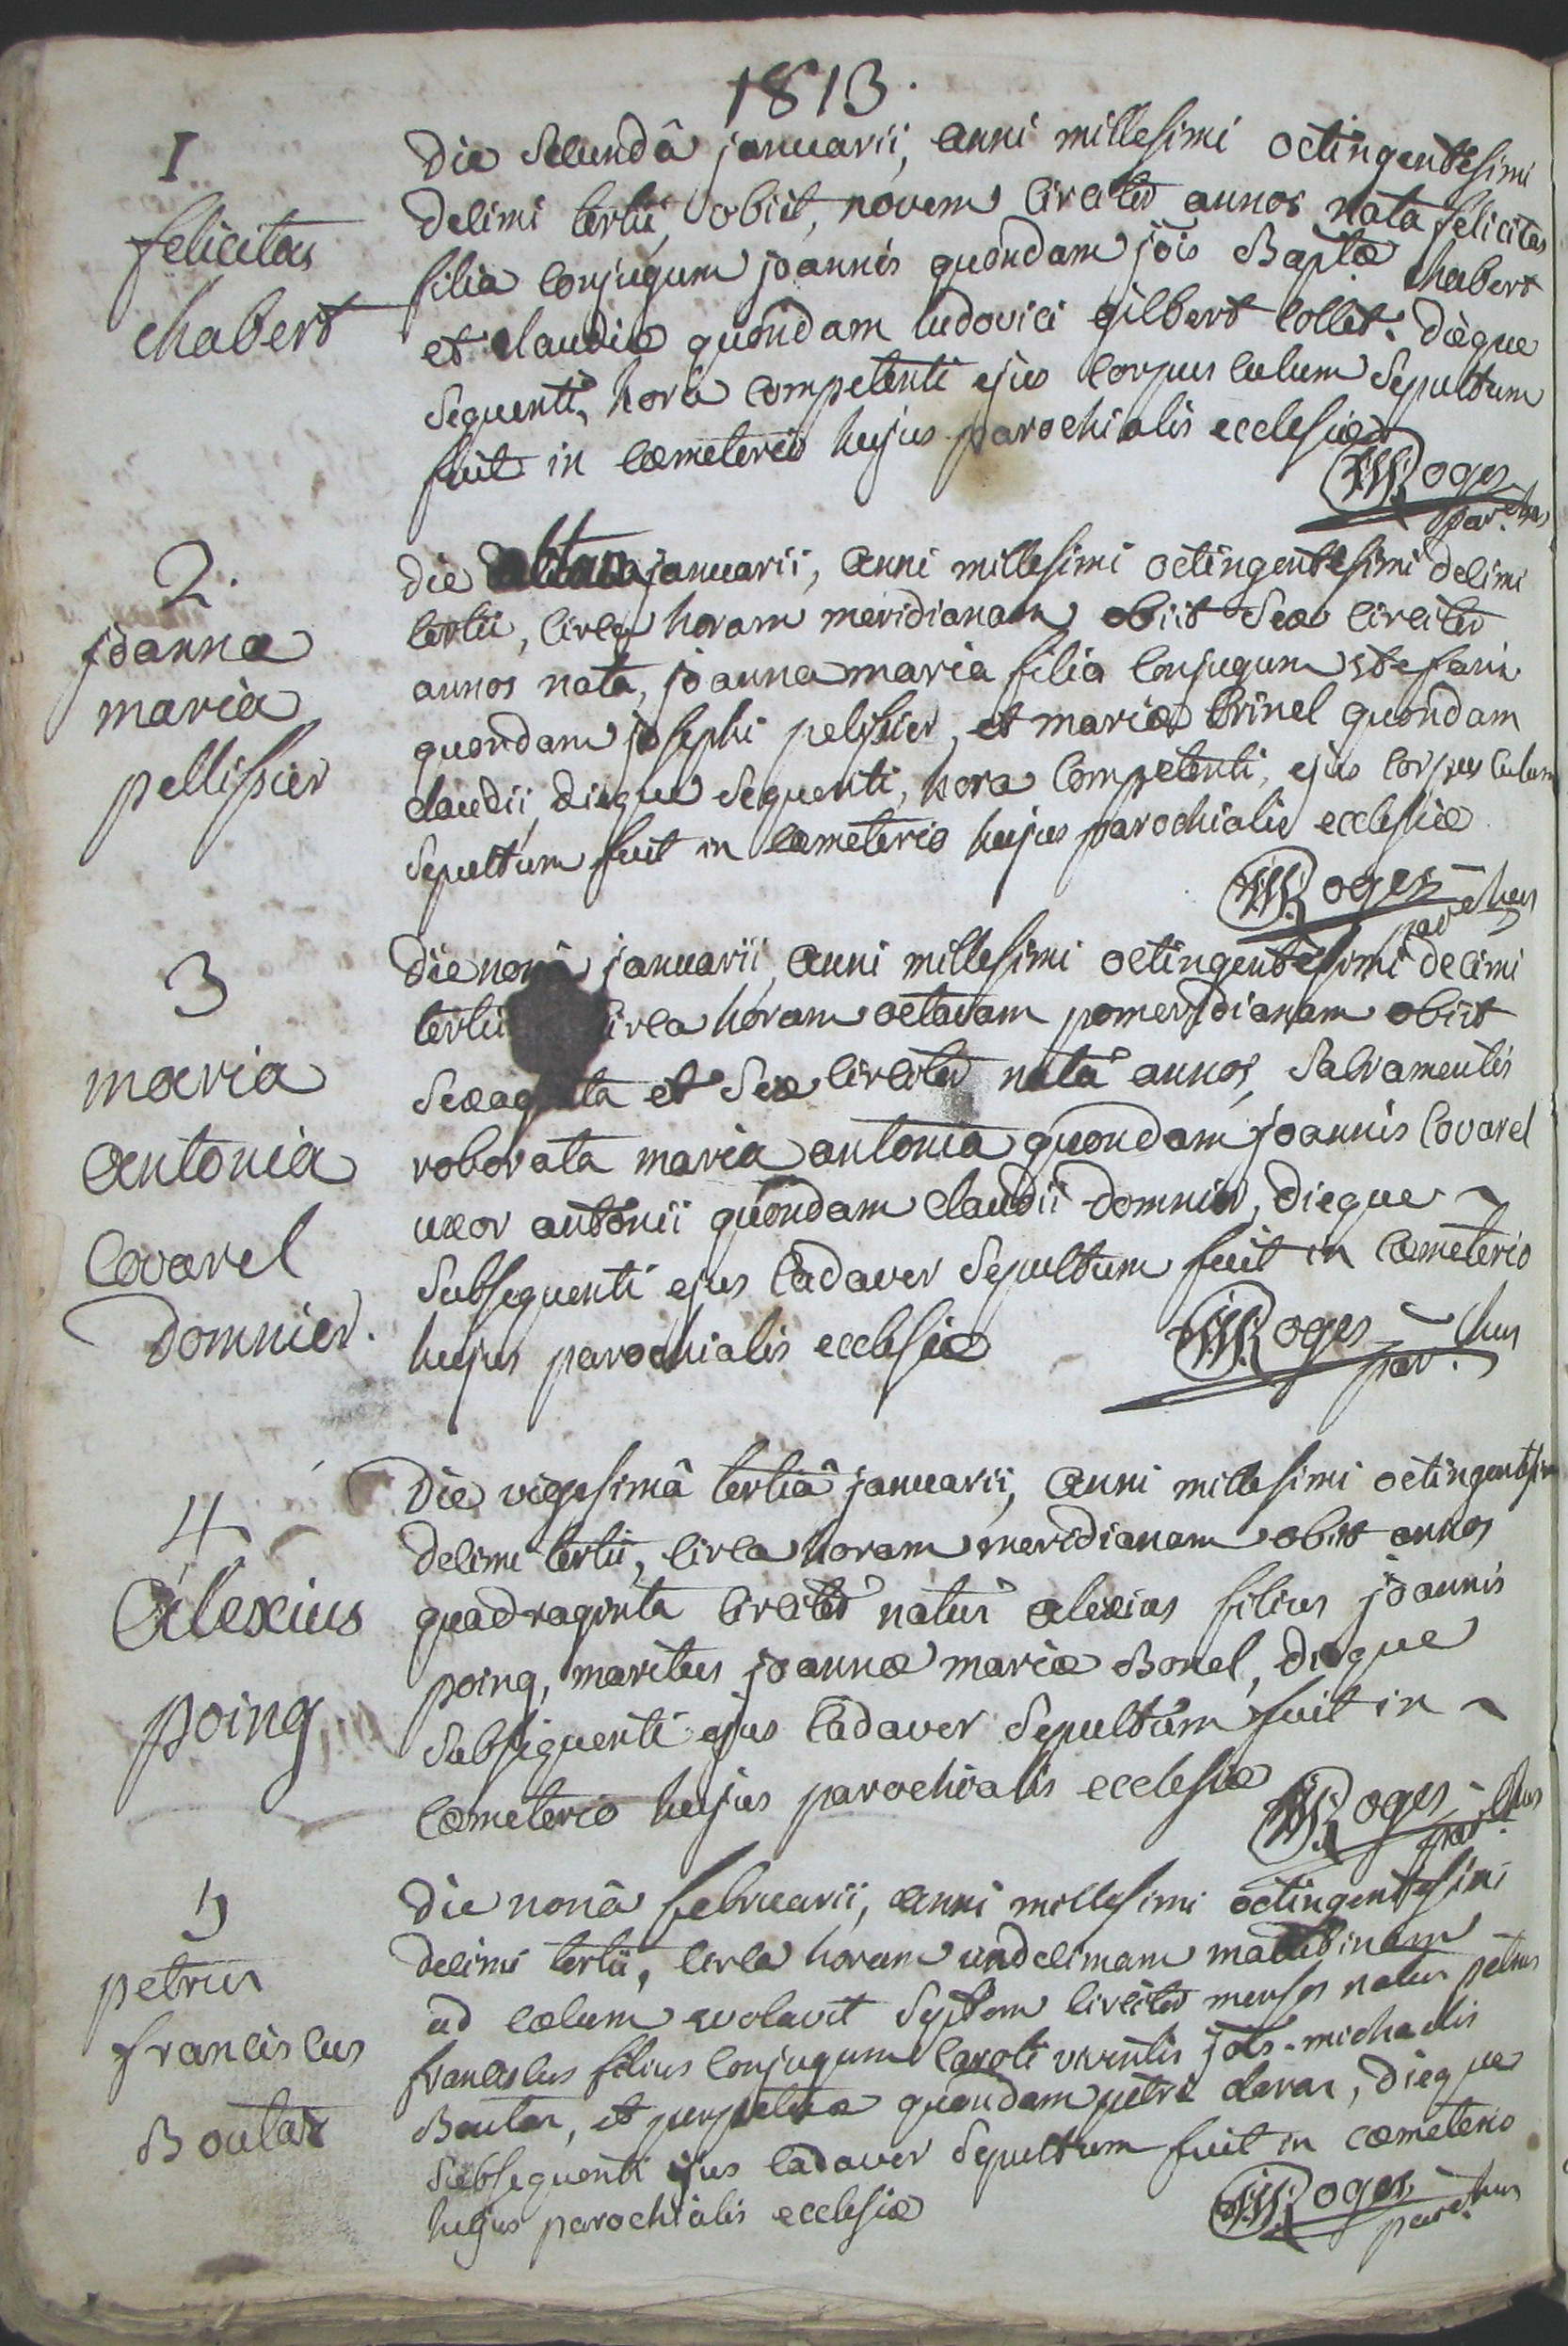 1813.
1
felicitas
chabert
Die secundâ januarii, anni millesimi octingentesimi
decimi tertii, obiit, novem circiter annos nata felicitas
filia conjugum joannis quondam jois Baptæ chabert
et claudiæ quondam ludovici gilbert collet. dieque
sequenti, horâ competenti ejus corpusculum sepultum
fuit in cæmeterio hujus parochialis ecclesiæ
Roges
par.chus
2.
joanna
maria
pellissier
Die octava januarii, anni millesimi octingentesimi decimi
tertii, circa horam meridianam obiit sex circiter
annos nata, joanna maria filia conjugum stefani
quondam josephi pelissier, et mariæ brinel quondam
claudii, dieque sequenti, hora competenti, ejus corpusculum
sepultum fuit in cæmeterio hujus parochialis ecclesiæ
Roges
parchus
3
maria
antonia
covarel
domnier.
Die nonâ januarii, anni millesimi octingentesimi decimi
tertii circa horam octavam pomeridianam obiit
sexaginta et sex circiter nata annos, sacramentis
roborata maria antonia quondam joannis covarel
uxor antonii quondam claudii domnier, dieque
subsequenti ejus cadaver sepultum fuit in cæmeterio
hujus parochialis ecclesiæ
Roges
par.chus
4
Alexius
poing
Die vigesimâ tertiâ januarii, anni millesimi octingentesimi
decimi tertii, circa horam meridianam obiit annos
quadraginta circiter natus alexius filius joannis
poing, maritus joannæ mariæ Bonel, dieque
subsequenti ejus cadaver sepultum fuit in
cæmeterio hujus parochialis ecclesiæ
Roges
par.chus
5
petrus
franciscus
Boutaz
Die nonâ februarii, anni millesimi octingentesimi
decimi tertii, circa horam undecimam matutinam
ad cælum evolavit septem circiter menses natus petrus
franciscus filius conjugum caroli viventis jois-michaelis
Boutaz, et perpetuæ quondam petri claraz, dieque
subsequenti ejus cadaver sepultum fuit in cæmeterio
hujus parochialis ecclesiæ
Roges
par.chus